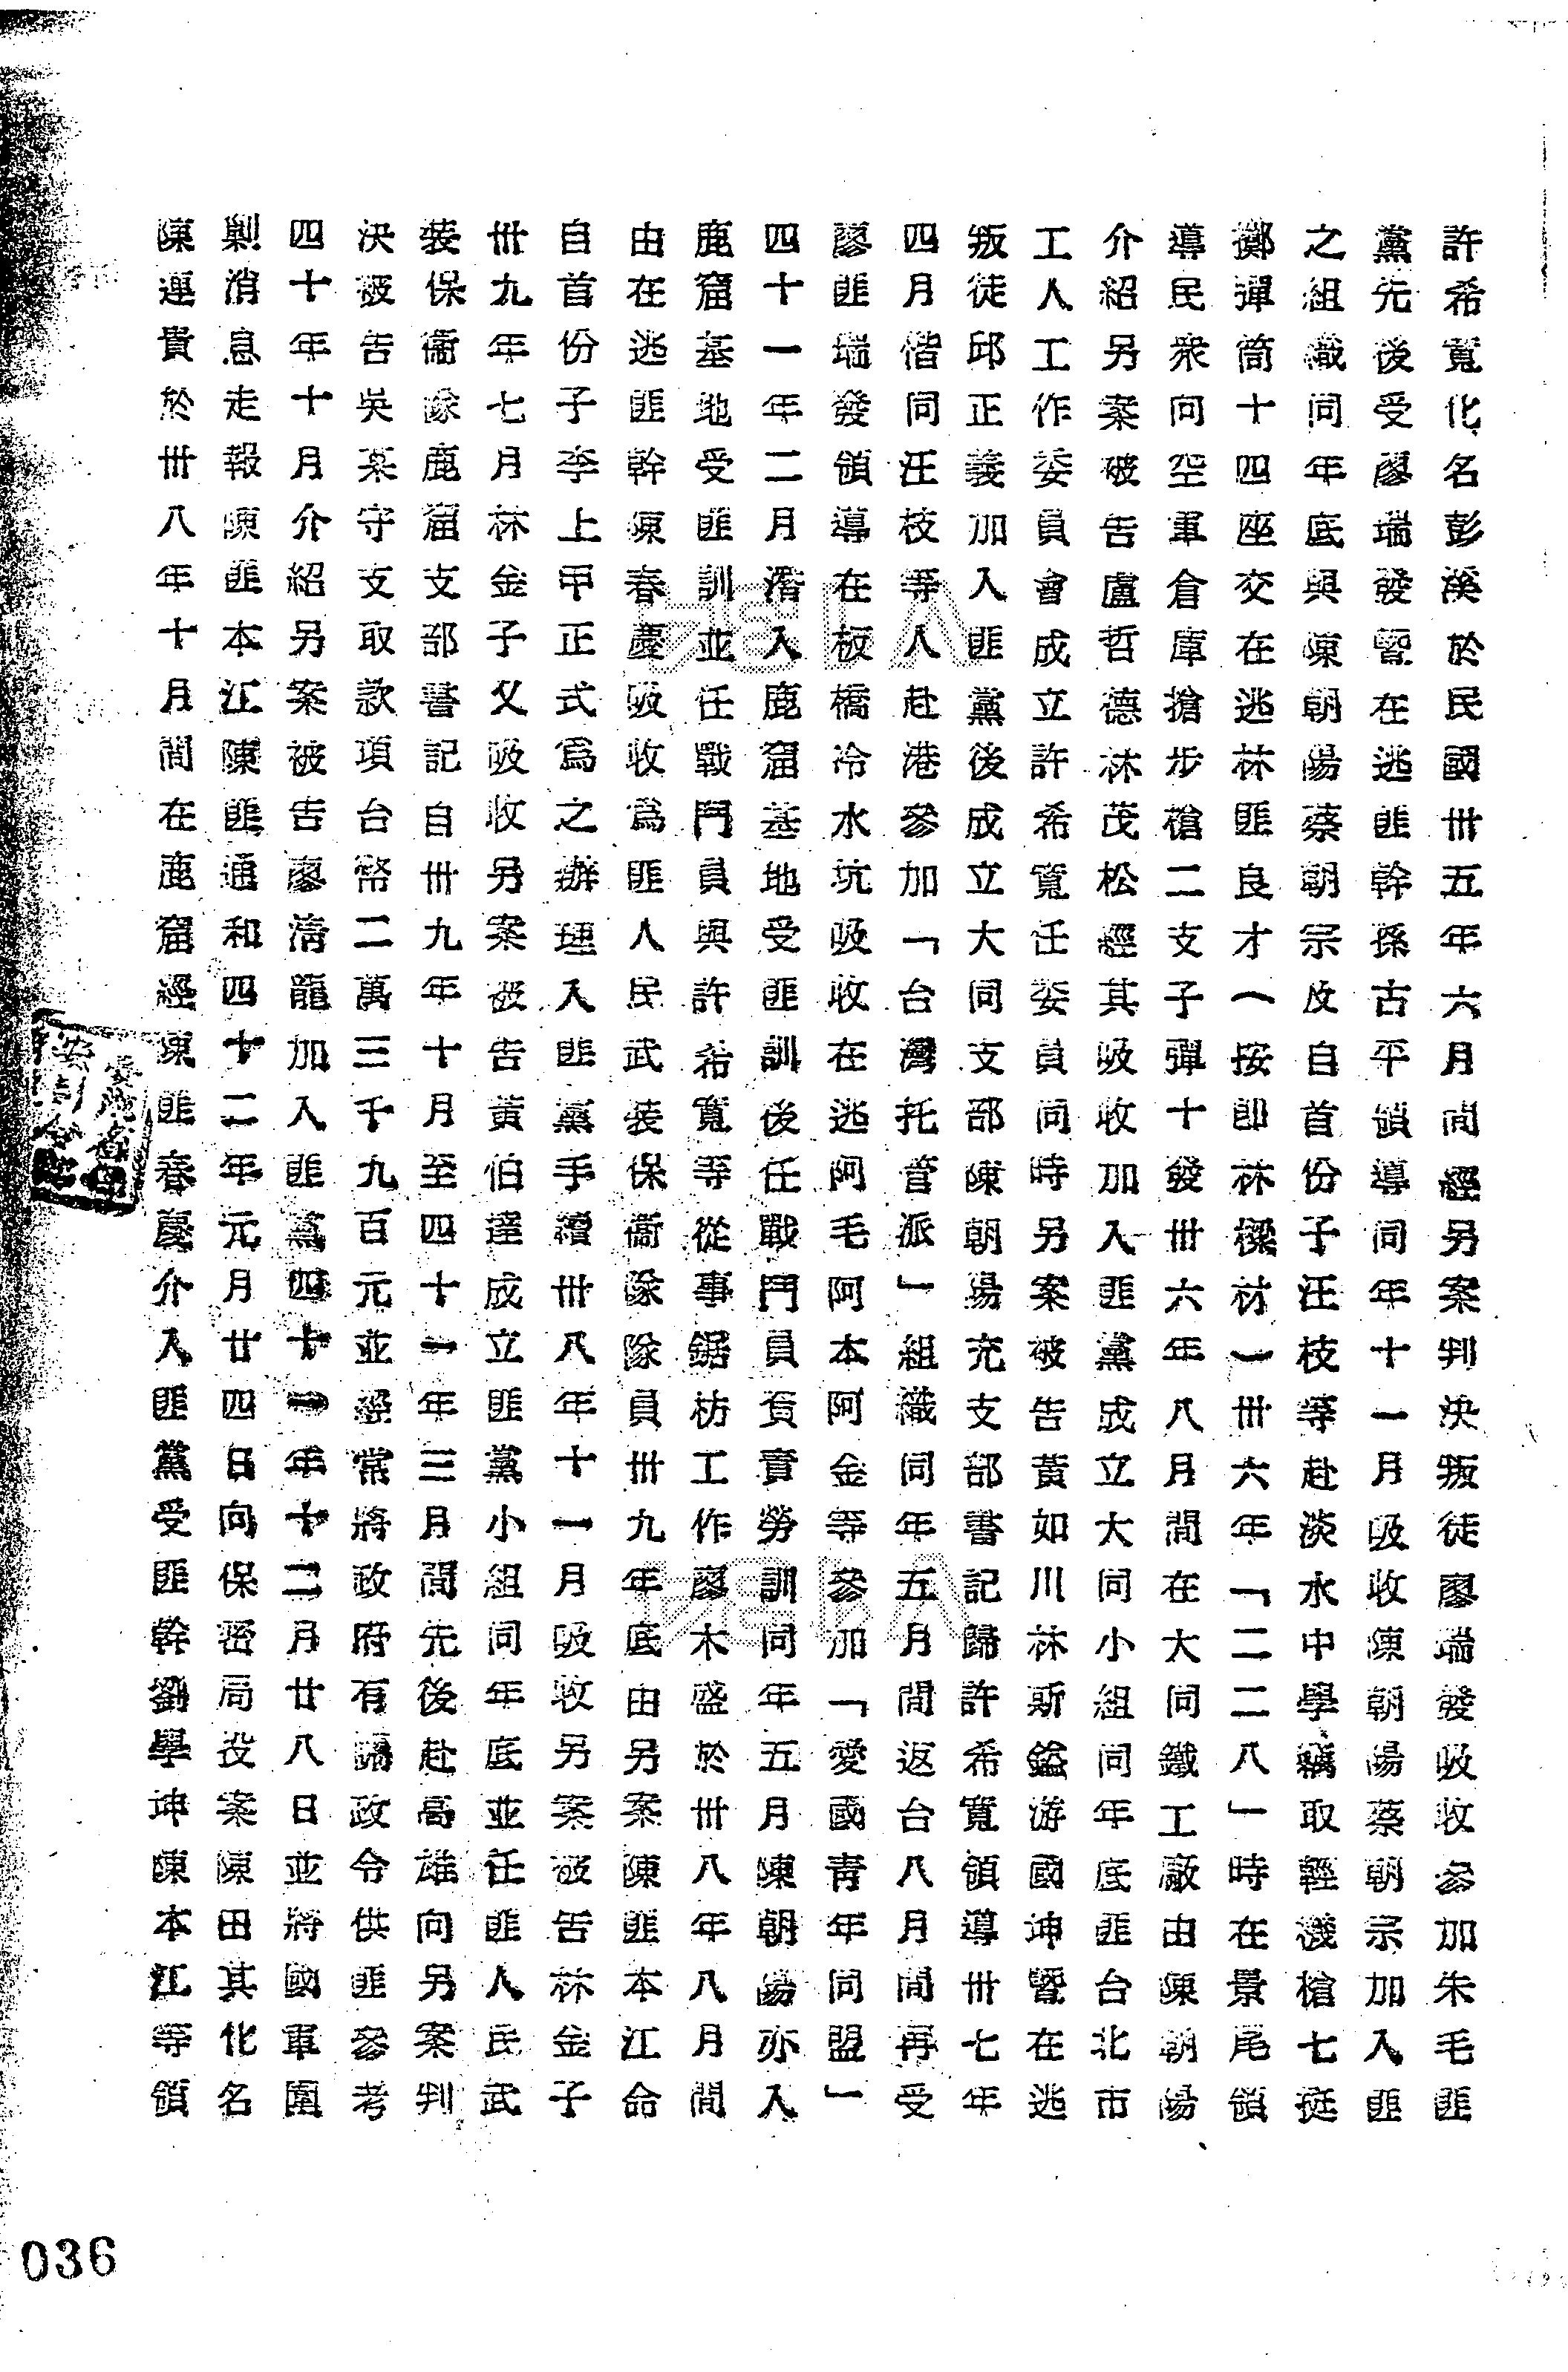 許希寬化名彭溪於民國卅五年六月間經另案判決叛徒廖瑞發吸收參加朱毛匪
黨先後受廖瑞發暨在逃匪幹孫古平領導同年十一月吸收陳朝陽蔡朝宗加入匪
之組織同年底與陳朝陽蔡朝宗及自首份子汪枝等赴淡水中學竊取輕機槍七挺
擲彈筒十四座交在逃林匪良才（按即林樑材）卅六年「二二八」時在景尾領
導民眾向空軍倉庫搶步槍二支子彈十發卅六年八月間在大同鐵工廠由陳朝陽
介紹另案破告盧哲德林茂松經其吸收加入匪黨成立大同小組同年底匪台北市
工人工作委員會成立許希寬任委員同時另案被告黃如川林斯鎰游國坤暨在逃
叛徒邱正義加入匪黨後成立大同支部陳朝陽充支部書記歸許希寬領導卅七年
四月偕同汪枝等人赴港參加「台灣托管派」組織同年五月間返台八月間再受
廖匪瑞發領導在板橋冷水坑吸收在逃阿毛阿本阿金等參加「愛國青年同盟」
四十一年二月潛入鹿窟基地受匪訓後任戰鬥員負責勞訓同年五月陳朝陽亦入
鹿窟基地受匪訓並任戰鬥員與許希寬等從事鋸枋工作廖木盛於卅八年八月間
由在逃匪幹陳春慶吸收為匪人民武裝保衞隊隊員卅九年底由另案陳匪本江命
自首份子李上甲正式為之辦理入匪黨手續卅八年十一月吸收另案被告林金子
卅九年七月林金子又吸收另案被告黃伯達成立匪黨小組同年底並任匪人民武
裝保衞隊鹿窟支部書記自卅九年十月至四十一年三月間先後赴高雄向另案判
決被告吳某守支取款項台幣二萬三千九百元並經常將政府有關政令供匪參考
四十年十月介紹另案被告廖清龍加入匪黨四十一年十二月廿八日並將國軍圍
剿消息走報陳匪本江陳匪通和四十二年元月廿四日向保密局投案陳田其化名
陳運貴於卅八年十月間在鹿窟經陳匪春慶介入匪黨受匪幹劉學坤陳本江等領
036